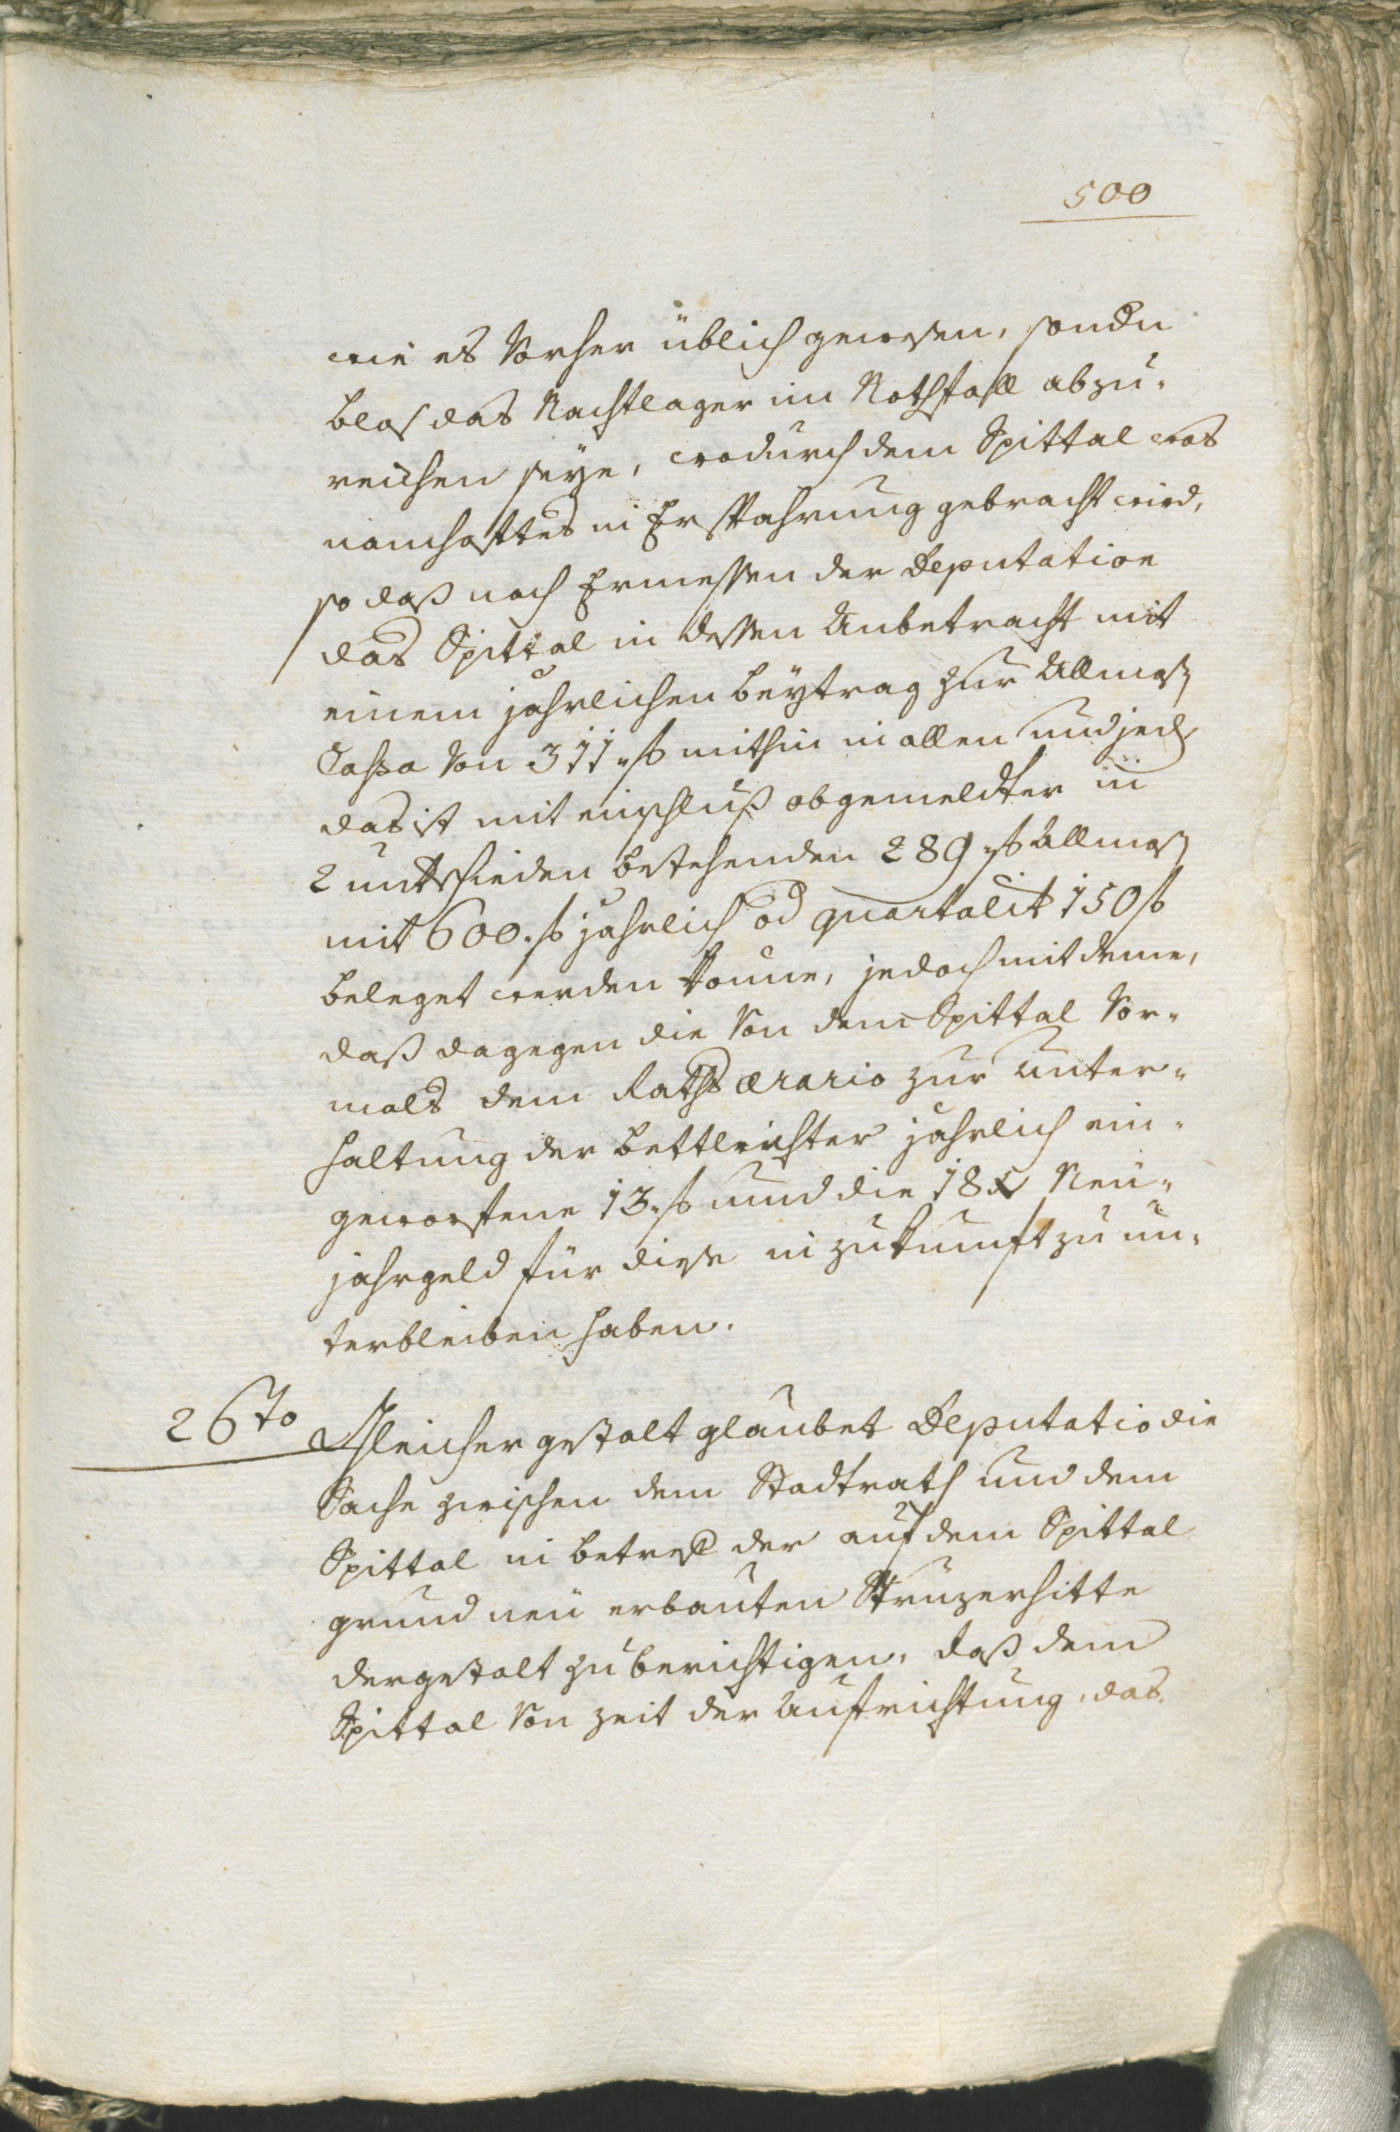 500
wie es Vorher üblich gewesen, sondern
blos das Nachtlager im Nothfall abzu-
reichen seye, wodurch dem Spittal was
namhaftes in Ersparung gebracht wird,
so daß nach Ermessen der Deputation
das Spittal in dessen Anbetracht mit
einem jahrlichen beytrag zur Allmoß
Cassa Von 311 f mithin in allen und jeden
das ist mit einschluß obgemeldter in
2 unterschieden bestehenden 289 f Allmoß
mit 600. f jahrlich od quartalit 150 f
beleget werden könne, jedoch mit deme,
daß dagegen die Von dem Spittal Vor-
mals dem Raths ærario zur Unter-
haltung der bettlrichter jahrlich ein-
geworfene 13. f und die 18 x Neu-
jahrgeld für diese in zukunft zu un-
terbleiben haben.
26to Gleichergestalt glaubet Deputatio die
Sache zwischen dem Stadtrath und dem
Spittal in betref der auf dem Spittal
grund neu erbauten Struzerhitte
dergestalt zu berichtigen, daß dem
Spittal Von zeit der Aufrichtung, das